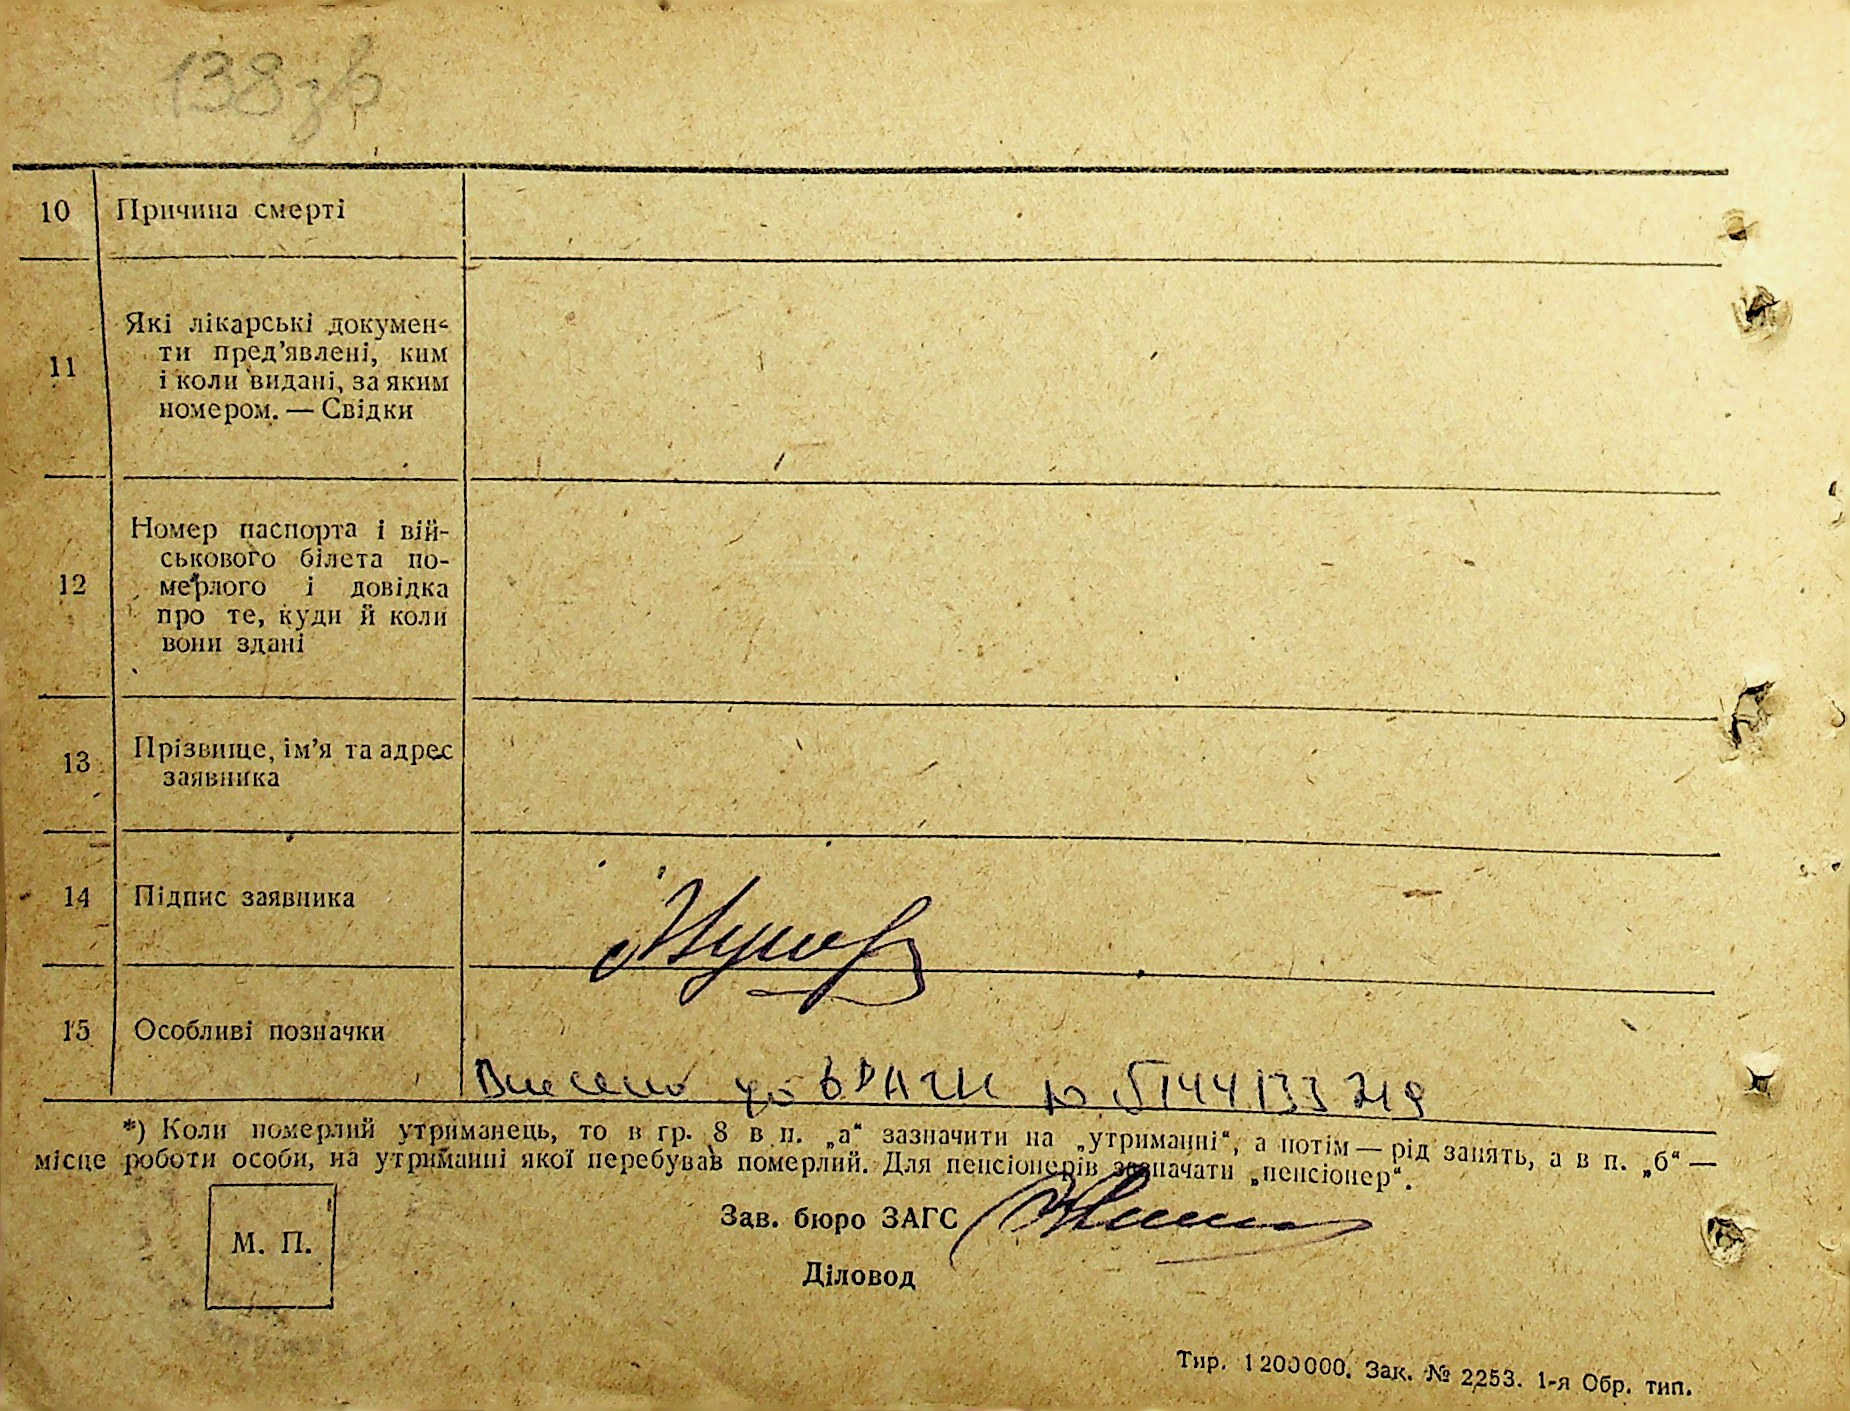 138 зв
10 Причина смерті
11 Які лікарські докумен-
ти пред’явлені, ким
і коли видані, за яким
номером. — Свідки
12 Номер паспорта і вій-
ськового білета по-
мерлого і довідка
про те, куди й коли
вони здані
13 Прізвище, ім’я та адрес
заявника
14 Підпис заявника
15 Особливі позначки
Внесено до
*) Коли померлий утриманець, то в гр. 8 в п. „а“ зазначити на „утриманні“, а потім — рід занять, а в п. „б“ —
місце роботи особи, на утриманні якої перебував померлий. Для пенсіонерів зазначати „пенсіонер“.
М. П.
Зав. бюро ЗАГС
Діловод
Тир. 1200000. Зак. № 2253. 1-я Обр. тип.